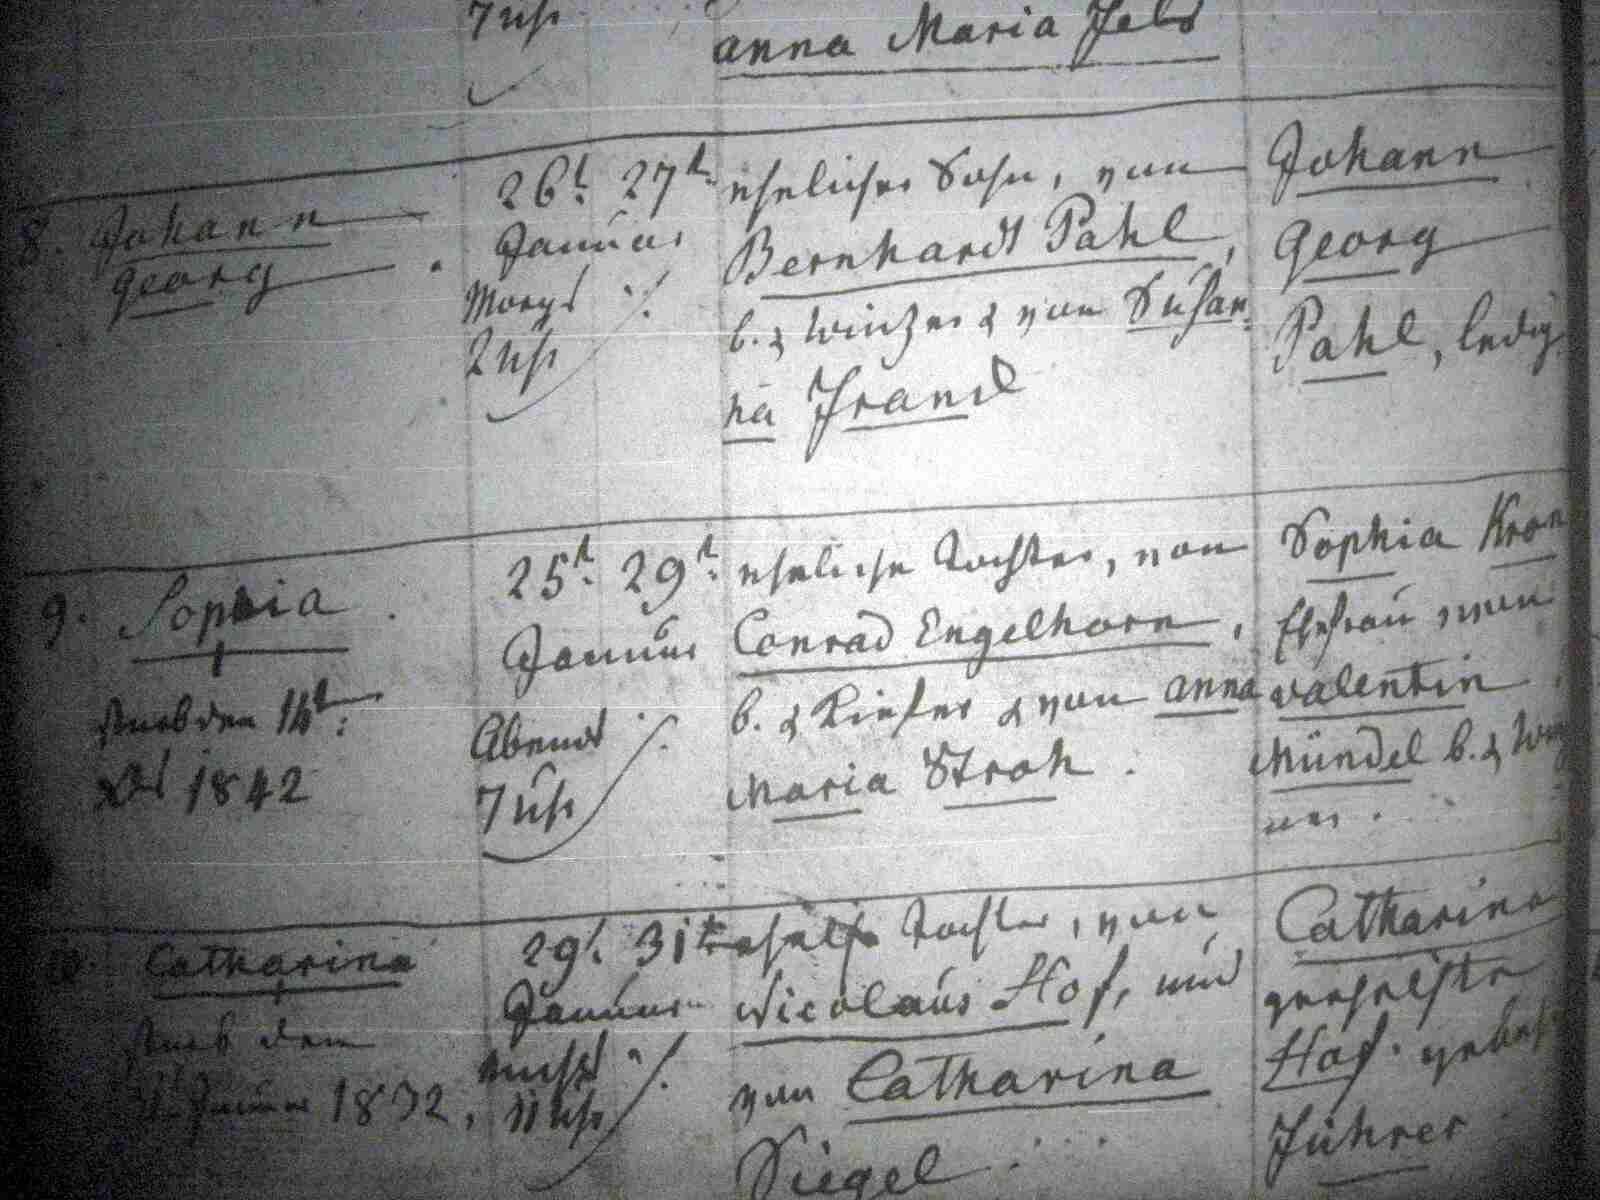 7 Uhr
anna Maria Feld
8. Johann
Georg
26t. 27t.
Januar
Morgs
2 Uhr
ehelicher Sohn, von
Bernhardt Pahl,
b. & Winzer & von Susan-
na Frand
Johann
Georg
Pahl, ledig
9. Sophia
starb den 14t.
1842
25t. 29t.
Januar
Abends
7 Uhr
eheliche Tochter, von
Conrad Engelhorn,
b. & Kiefer & von anna
Maria Stroh.
Sophia Kron
Ehefrau von
valentin
Mündel b. & Win
zer.
10. Catharina
starb den
Januar 1832,
29t. 31t
Januar
nachts
11 Uhr
ehel. Tochter, von
Nicolaus Hof, und
von Catharina
Siegel
Catharina
verehelichte
Hof. geborne
Führer